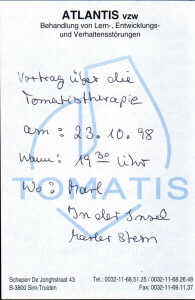 ATLANTIS vzw
Behandlung von Lern-, Entwicklungs-
und Verhaltensstörungen
Vortrag über die
Tomatistherapie
am : 23.10.98
Wann : 19 30 Uhr
Wo : Marl
TOMATIS
In der Insel
Marler Stern
Schepen De Jonghstraat 43
B-3800 Sint-Truiden
Tel.: 0032-11-68.51.25 / 0032-11-68.26.48
Fax: 0032-11-69.11.37